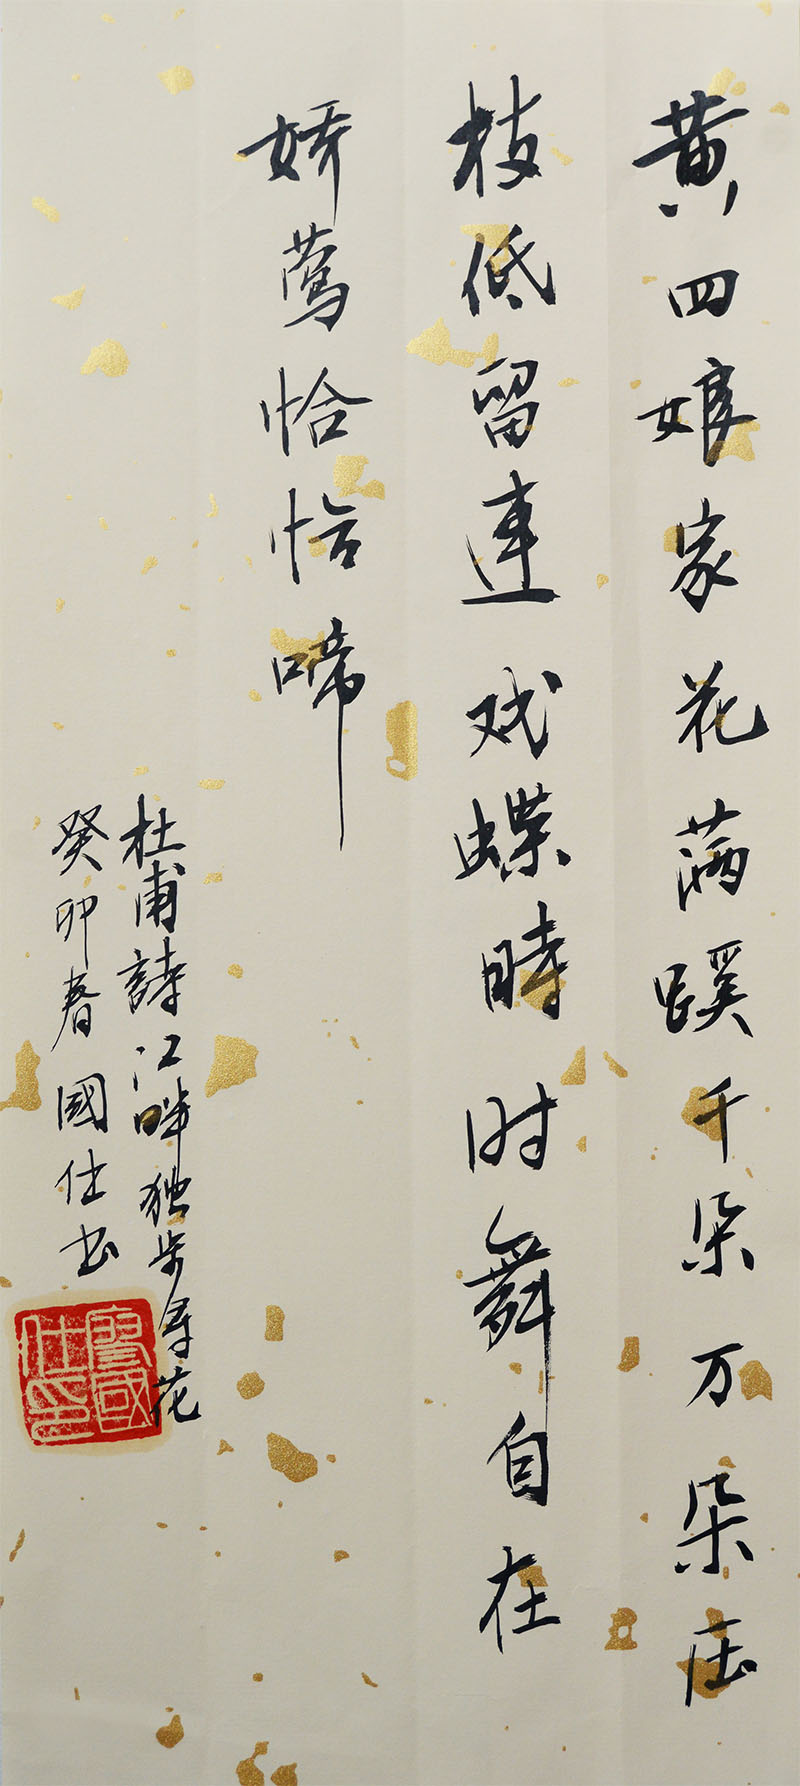 黄四娘家花满蹊千朵万朵压
枝低留連戏蝶時时舞自在
娇莺恰恰啼
杜甫詩江畔独步寻花
癸卯春國仕书
廖國仕印